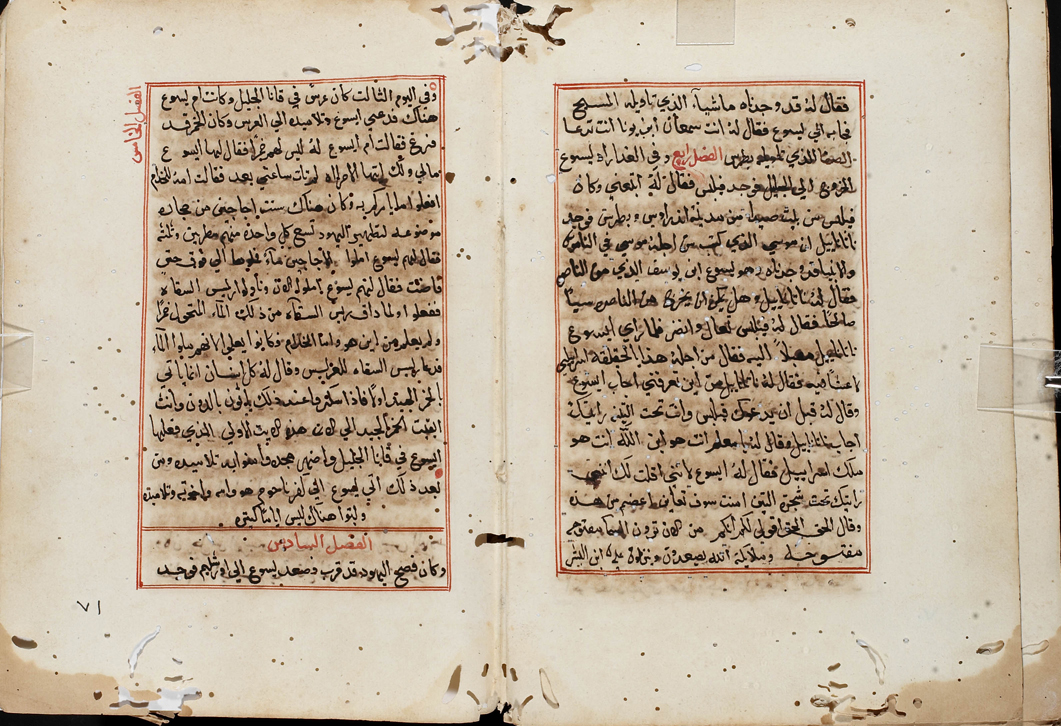 فقال له قد وجدناه ماشيا الذي تاويله المسيح
فجاب الي يسوع فقال له انت سمعان ابن يونا انت تدعا
الصفا الذي بطرس الفصل الرابع وفي الغد اراد يسوع
الخروج الي الجليل فوجد فيلبس فقال له اتبعني وكان
فيلبس من بيت صيدا من مدينة اندراوس وبطرس فوجد
ناتانايل ان موسي الذي كتب من اجله موسي في الناموس
والانبيا قد وجدناه وهو يسوع ابن يوسف الذي من الناصره
فقال له ناتانايل وهل يمكن ان يخرج من الناصره شيا
صالحا فقال له فيلبس تعال وانضر فلما راي ايسوع
ناتانايل مقبلا اليه فقال من اجله هذا الحقيقة
لا غش فيه فقال له ناتانايل من اين تعرفني اجاب ايسوع
وقال له قبل ان يدعوك فيلبس وانت تحت التينه رايتك
اجاب ناتانايل وقال له يا معلم انت هو ابن الله انت هو
ملك اسراييل فقال له ايسوع لانني اقلت لك انني
رايتك تحت شجرة التين امنت سوف تعاين ما اعضم من هذه
وقال الحق الحق اقول لكم انكم من الان ترون السما مفتوحه
مفتوحه وملايكة الله يصعدون وينزلون علي ابن البشر
الفصل الخامس
وفي اليوم الثالت كان عرس في قانا الجليل وكانت ام يسوع
هناك فدعي ايسوع وتلاميذه الي العرس وكان الخمر قد
فرغ فقالت ام ايسوع له ليس لهم خمرا فقال لها ايسوع
مالي ولك ايتها الامراه لم تات ساعتي بعد فقالت امه للخدام
افعلوا ما يامركم به وكان هناك ست اجاجين من حجاره
موضوعه لتطهير اليهود تسع كل واحدة منهم مطرين وثلثه
فقال لهم يسوع املوا الاجاجين ماء فملوها الي فوق حتي
فاضت فقال لهم يسوع املوا الان وناولوا رييس السقاه
ففعلوا ولما داق رييس السقاه من ذلك الماء المتحول خمرا
ولم يعلم من اين هو واما الخدام فكانوا يعلموا لانهم ملوا الماء
فدعا رييس السقاه للعريس وقال له كل انسان انما ياتي
بالخمر الجيد اولا فاذا سكروا عند ذلك ياتون بالدون وانت
ابقيت الخمر الجيد الي الان هذه الايت الاولي الذي فعلها
ايسوع في قانا الجليل واضهر مجده وامنوا به تلاميذه ومن
بعد ذلك اتي يسوع الي كفرناحوم هو وامه واخوته وتلاميذه
ولبتوا هناك ليس اياما كتيره
الفصل السادس
وكان فصح اليهود قد قرب وصعد يسوع الي اورشليم فوجد
٧١